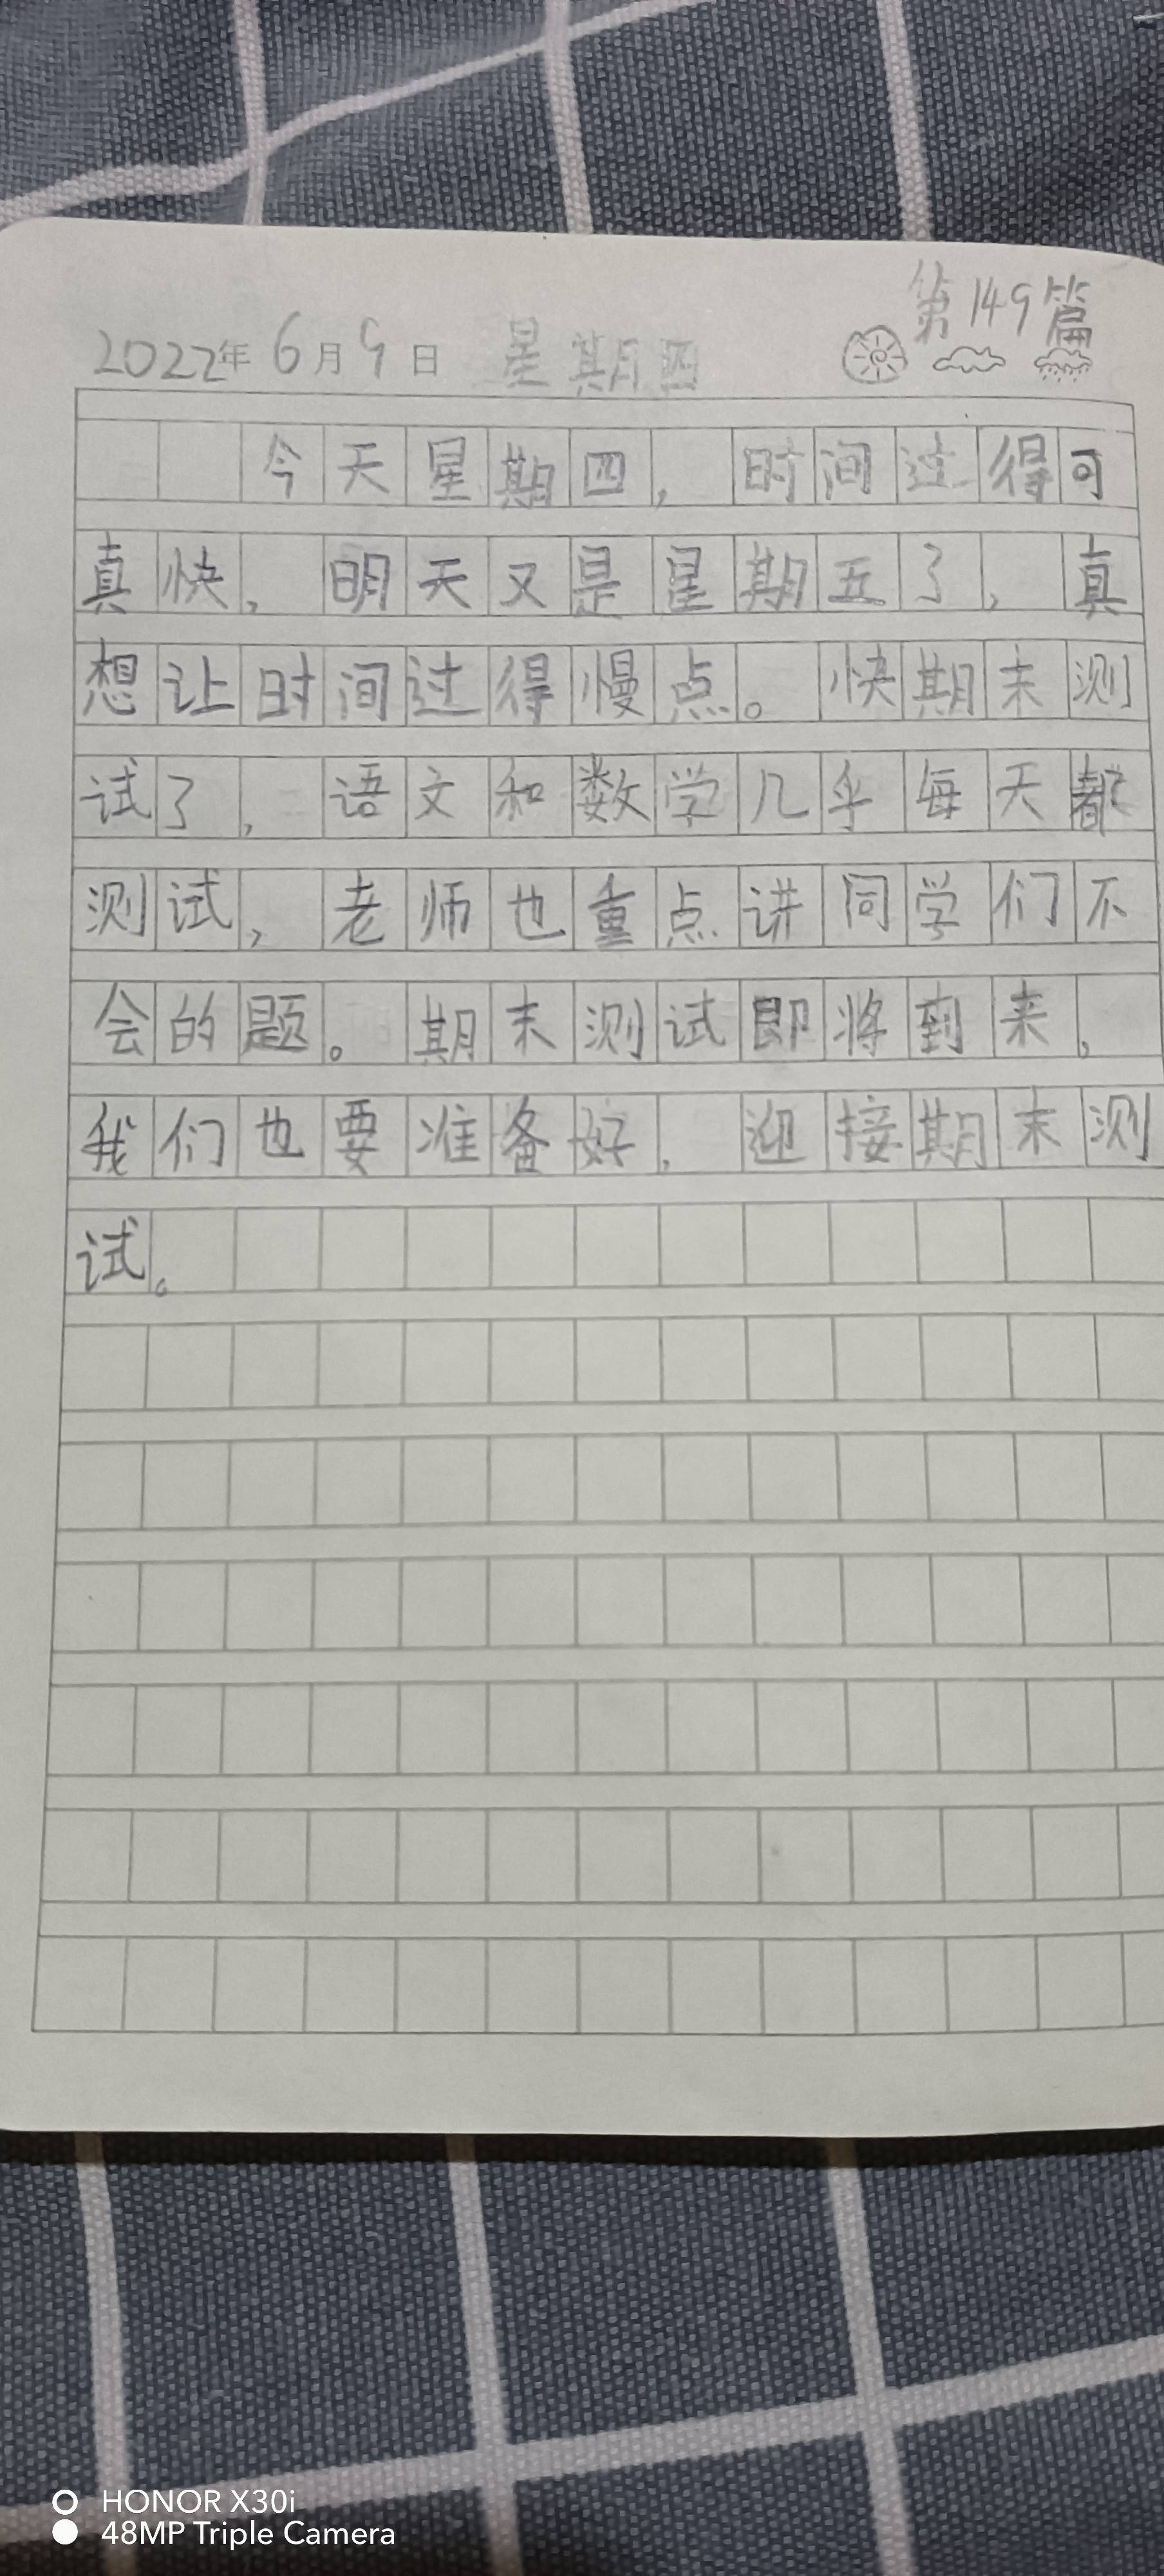 第149篇
2022年6月9日 星期四
今天星期四,时间过得可
真快,明天又是星期五了,真
想让时间过得慢点。快期末测
试了,语文和数学几乎每天都
测试,老师也重点讲同学们不
会的题。期末测试即将到来,
我们也要准备好,迎接期末测
试。
HONOR X30i
48MP Triple Camera